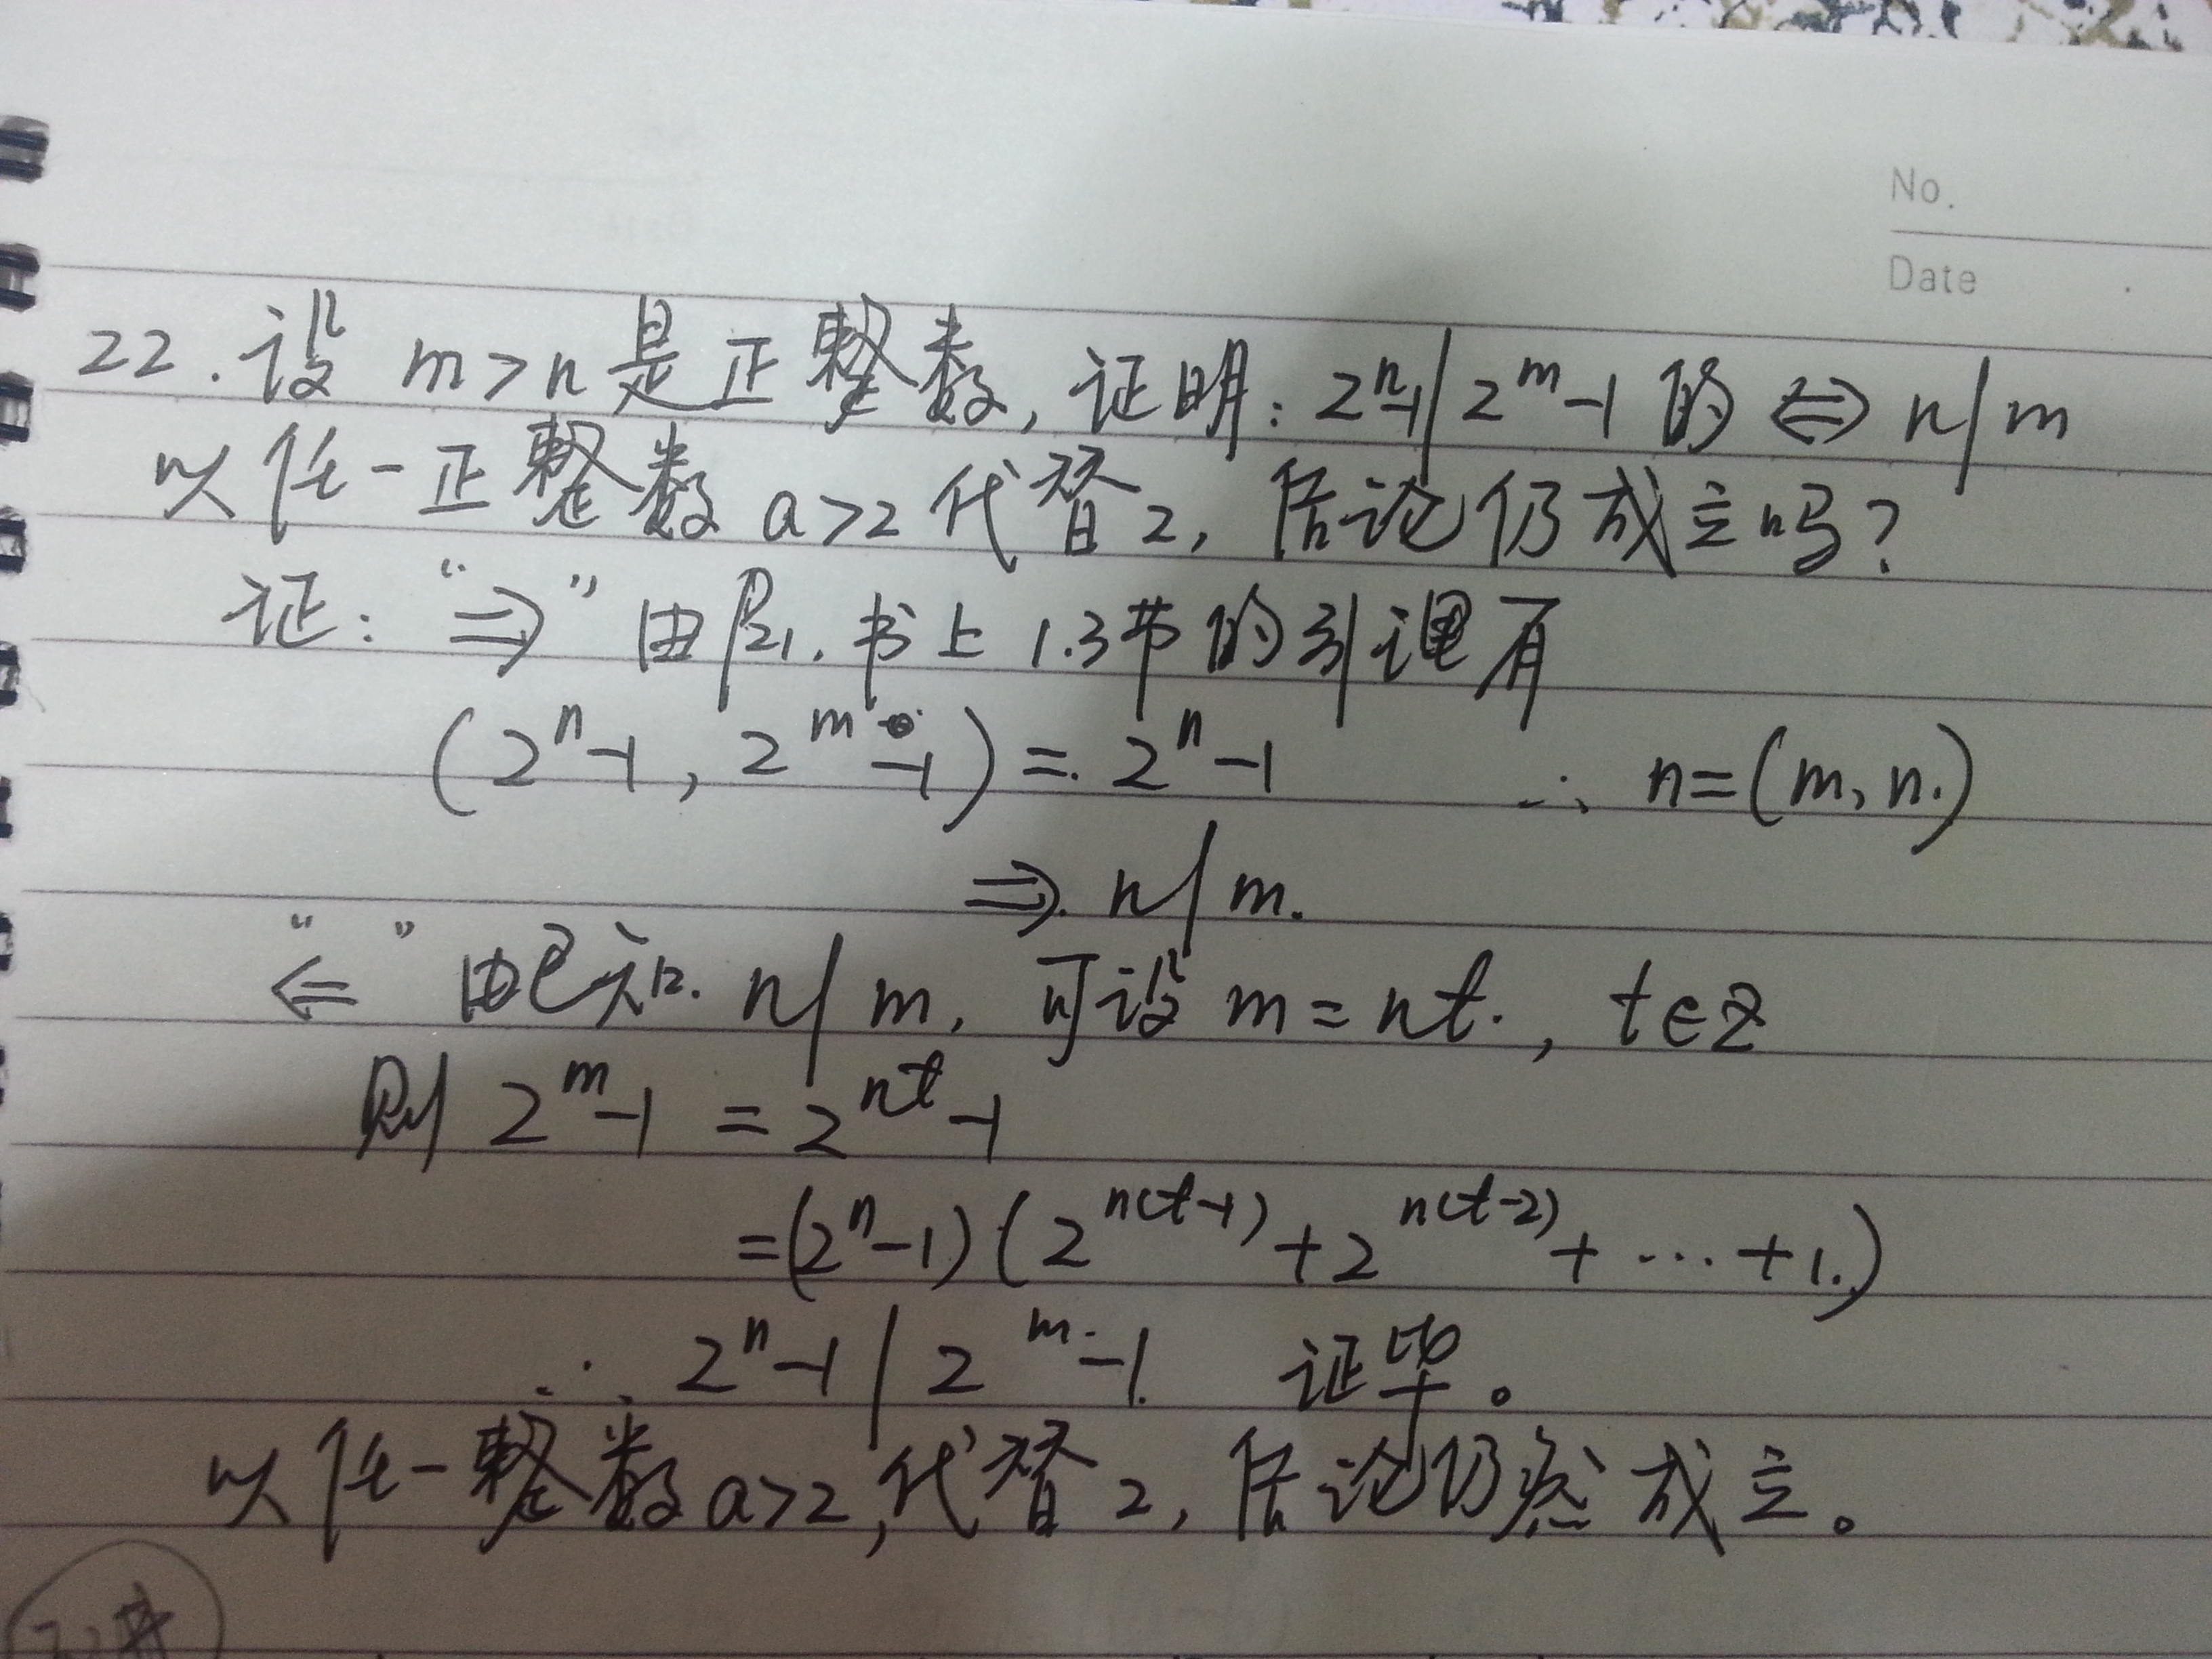 No.
Date
22. 设 m>n 是正整数, 证明: 2ⁿ-1 | 2ᵐ-1 的 ⇔ n|m
以任一正整数 a>2 代替 2, 结论仍成立吗?
证: "⇒" 由P21. 书上 1.3节的引理有
(2ⁿ-1, 2ᵐ-1) = 2ⁿ-1 ∴ n=(m, n.)
⇒. n|m.
"⇐" 由已知. n|m, 可设 m=nt., t∈Z
则 2ᵐ-1 = 2ⁿᵗ-1
=(2ⁿ-1)(2ⁿ⁽ᵗ⁻¹⁾+2ⁿ⁽ᵗ⁻²⁾+ ... +1.)
∴ 2ⁿ-1 | 2ᵐ-1. 证毕。
以任一整数 a>2, 代替 2, 结论仍然成立。